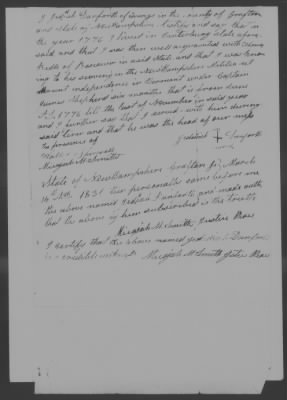 I Jedediah Danforth of Orange in the county of Grafton
and State of New Hampshire testify and say that in
the year 1776 I lived in Canterbury State afore
said and that I was then well acquainted with
of Boscawen in said State and that I was know
ing to his serving in the New Hampshire Militia at
Mount independence in Vermont under Captain
Shepherd six months that is from June
1776 till the last of November in said year
and I further say that I served with him during
said time and that he was the head of our mess
In presence of
Jedediah Danforth
mark
Micajah M Smith
State of New Hampshire Grafton ss March
14th AD. 1831 then personally came before me
the above named Jedediah Danforth and made oath
that the above by him subscribed is the truth
Micajah M Smith Justice Peace
I certify that the above named Jedediah Danforth
is a credible witness Micajah M Smith Justice Peace